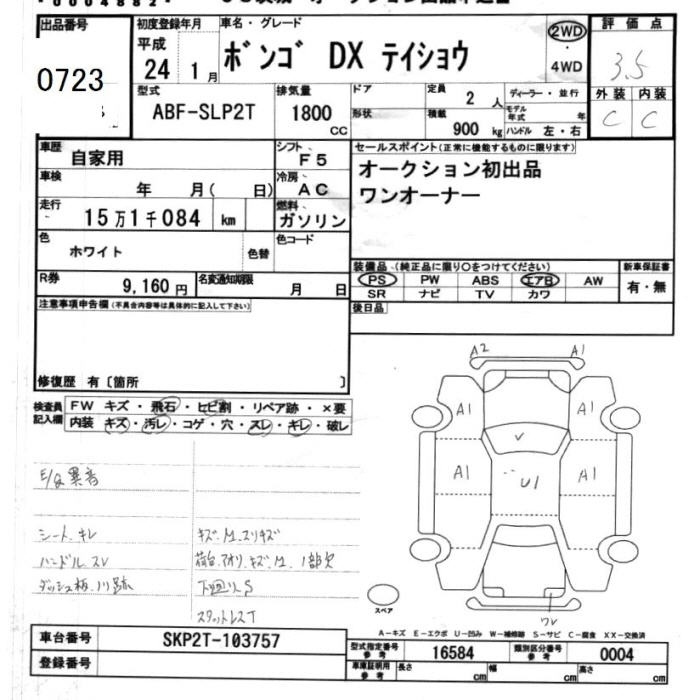 出品番号
0723
初度登録年月
平成 24 1月
車名・グレード
ボンゴ DX テイショウ
2WD・4WD
評価点
3.5
外装 内装
C C
型式
ABF-SLP2T
排気量
1800 CC
ドア
形状
定員 2 人
積載 900 kg
ディーラー・並行
モデル年式 年
ハンドル 左・右
車歴 自家用
シフト F5
車検 年 月( 日)
冷房 AC
走行 15万1千084 km
燃料 ガソリン
色 ホワイト 色替
色コード
R券 9,160円
名変通知期限 月 日
セールスポイント(正常に機能するものに限ります)
オークション初出品
ワンオーナー
装備品(純正品に限り○をつけてください)
PS PW ABS エアB AW
SR ナビ TV カワ
新車保証書
有・無
後日品
注意事項申告欄(不具合内容等は具体的に記入して下さい)
修復歴 有〔箇所 〕
検査員記入欄
FW キズ・飛石・ヒビ割・リペア跡・×要
内装 キズ・汚レ・コゲ・穴・スレ・キレ・破レ
E/g異音
シート、キレ
ハンドル、スレ
ダッシュ板、ハリ跡
キズ、M、スリキズ
荷台、アオリ、キズ、M、1部欠
下回リ、S
A2 A1
A1 A1
V
A1 U1 A1
スペア
A－キズ E－エクボ U－凹み W－補修跡 S－サビ C－腐食 XX－交換済
車台番号 SKP2T-103757
登録番号
型式指定番号 参考 16584
類別区分番号 参考 0004
車庫証明用 参考 長さ cm 幅 cm 高さ cm